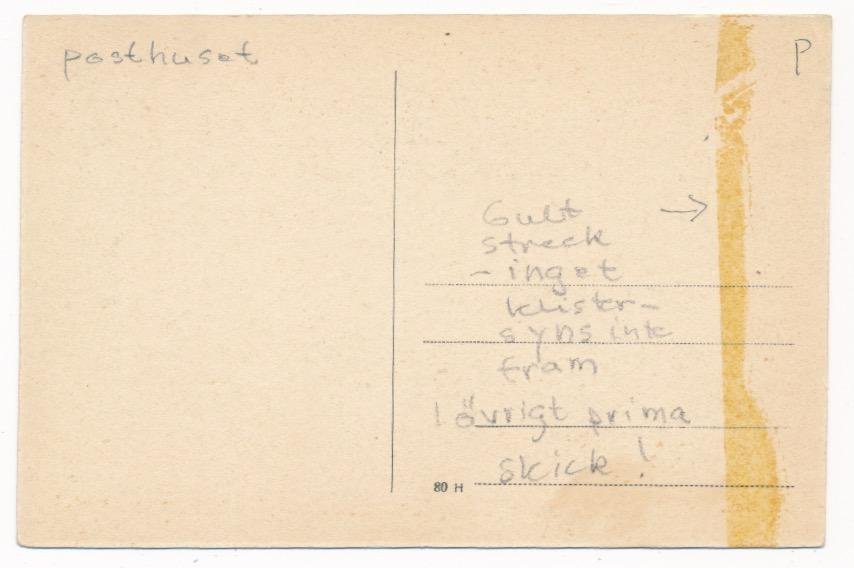 posthuset
P
Gult →
streck
- inget
klister-
syns inte
fram
I övrigt prima
skick!
80 H